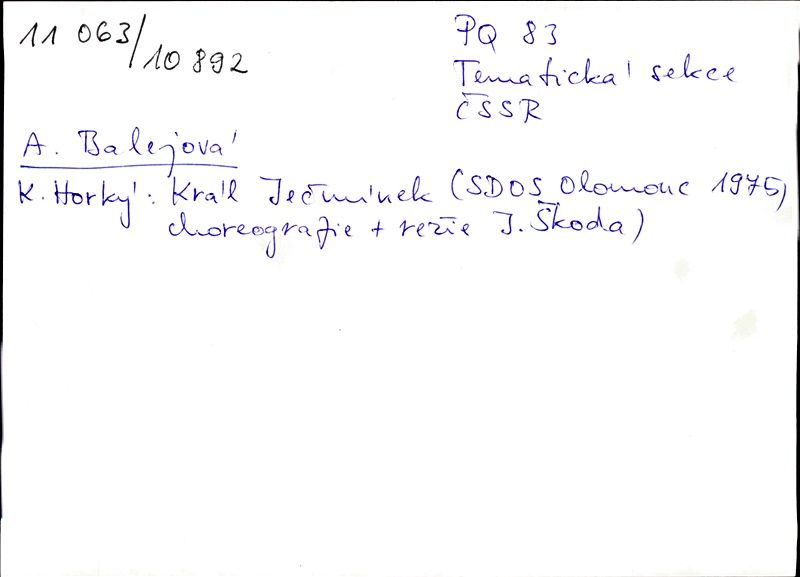 11 063/10 892
PQ 83
Tematická sekce
ČSSR
A. Balejová
K. Horký: Král Ječmínek (SDOS Olomouc 1975,
choreografie + režie J. Škoda)